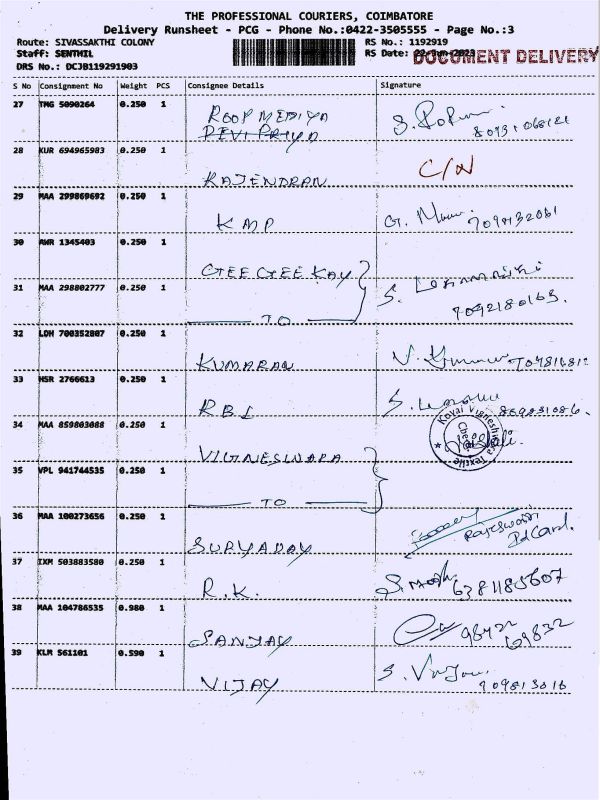 THE PROFESSIONAL COURIERS, COIMBATORE
Delivery Runsheet - PCG - Phone No.:0422-3505555 - Page No.:3
Route: SIVASSAKTHI COLONY RS No.: 1192919
Staff: SENTHIL RS Date: 22-Jun-2023 DOCUMENT DELIVERY
DRS No.: DCJB119291903
S No Consignment No Weight PCS Consignee Details Signature
27 TMG 5090264 0.250 1 ROOP MEDIYA
DEVI PRIYA
28 KUR 694965983 0.250 1 RAJENDRAN C/N
29 MAA 299869692 0.250 1 KMP
30 AWR 1345403 0.250 1 GEE GEE KAY
31 MAA 298802777 0.250 1 TO 7092180163.
32 LDH 700352807 0.250 1 KUMARAN
33 HSR 2766613 0.250 1 RBI
34 MAA 859803088 0.250 1 VIGNESWARA
Kovai Vigneshwara Textile
35 VPL 941744535 0.250 1 TO
36 MAA 100273656 0.250 1 SURYADAY Rajeswari
Id Card.
37 IXM 503883580 0.250 1 R.K. 6381185607
38 MAA 104786535 0.980 1 SANJAY 98422 69832
39 KLM 561101 0.590 1 VIJAY S. Vijay